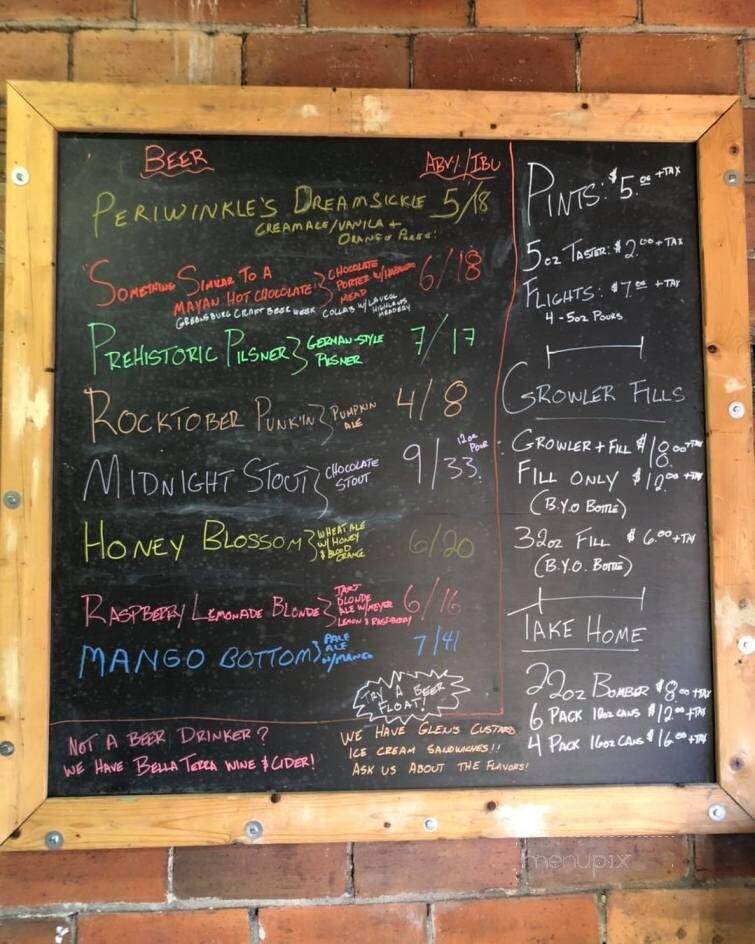 BEER
ABV%/IBU
PERIWINKLE'S DREAMSICKLE 5/18
CREAMALE/VANILA +
ORANGE PUREE!
"SOMETHING SIMILAR TO A
MAYAN HOT CHOCOLATE"
CHOCOLATE
PORTER W/HABANERO
MEAD
6/18
GREENSBURG CRAFT BEER WEEK COLLAB W/LAUREL
HIGHLANDS
MEADERY
PREHISTORIC PILSNER
GERMAN-STYLE
PILSNER
7/17
ROCKTOBER PUNK'N
PUMPKIN
ALE
4/8
MIDNIGHT STOUT
CHOCOLATE
STOUT
9/33
12oz
POUR
HONEY BLOSSOM
WHEAT ALE
W/ HONEY
& BLOOD
ORANGE
6/20
RASPBERRY LEMONADE BLONDE
TART
BLONDE
ALE W/MEYER
LEMON & RASPBERRY
6/16
MANGO BOTTOM
PALE
ALE
W/MANGO
7/41
TRY A BEER
FLOAT!
NOT A BEER DRINKER?
WE HAVE BELLA TERRA WINE & CIDER!
WE HAVE GLEN'S CUSTARD
ICE CREAM SANDWICHES!!
ASK US ABOUT THE FLAVORS!
PINTS: $5.00 +TAX
5oz TASTER: $2.00 +TAX
FLIGHTS: $7.00 +TAX
4 - 5oz POURS
GROWLER FILLS
GROWLER + FILL $18.00 +TAX
FILL ONLY $12.00 +TAX
(B.Y.O BOTTLE)
32oz FILL $6.00 +TAX
(B.Y.O. BOTTLE)
TAKE HOME
22oz BOMBER $8.00 +TAX
6 PACK 12oz CANS $12.00 +TAX
4 PACK 16oz CANS $16.00 +TAX
menupix